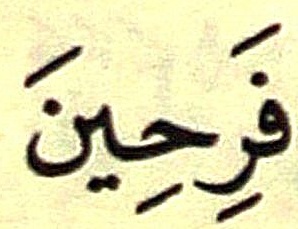 فَرِحِينَ